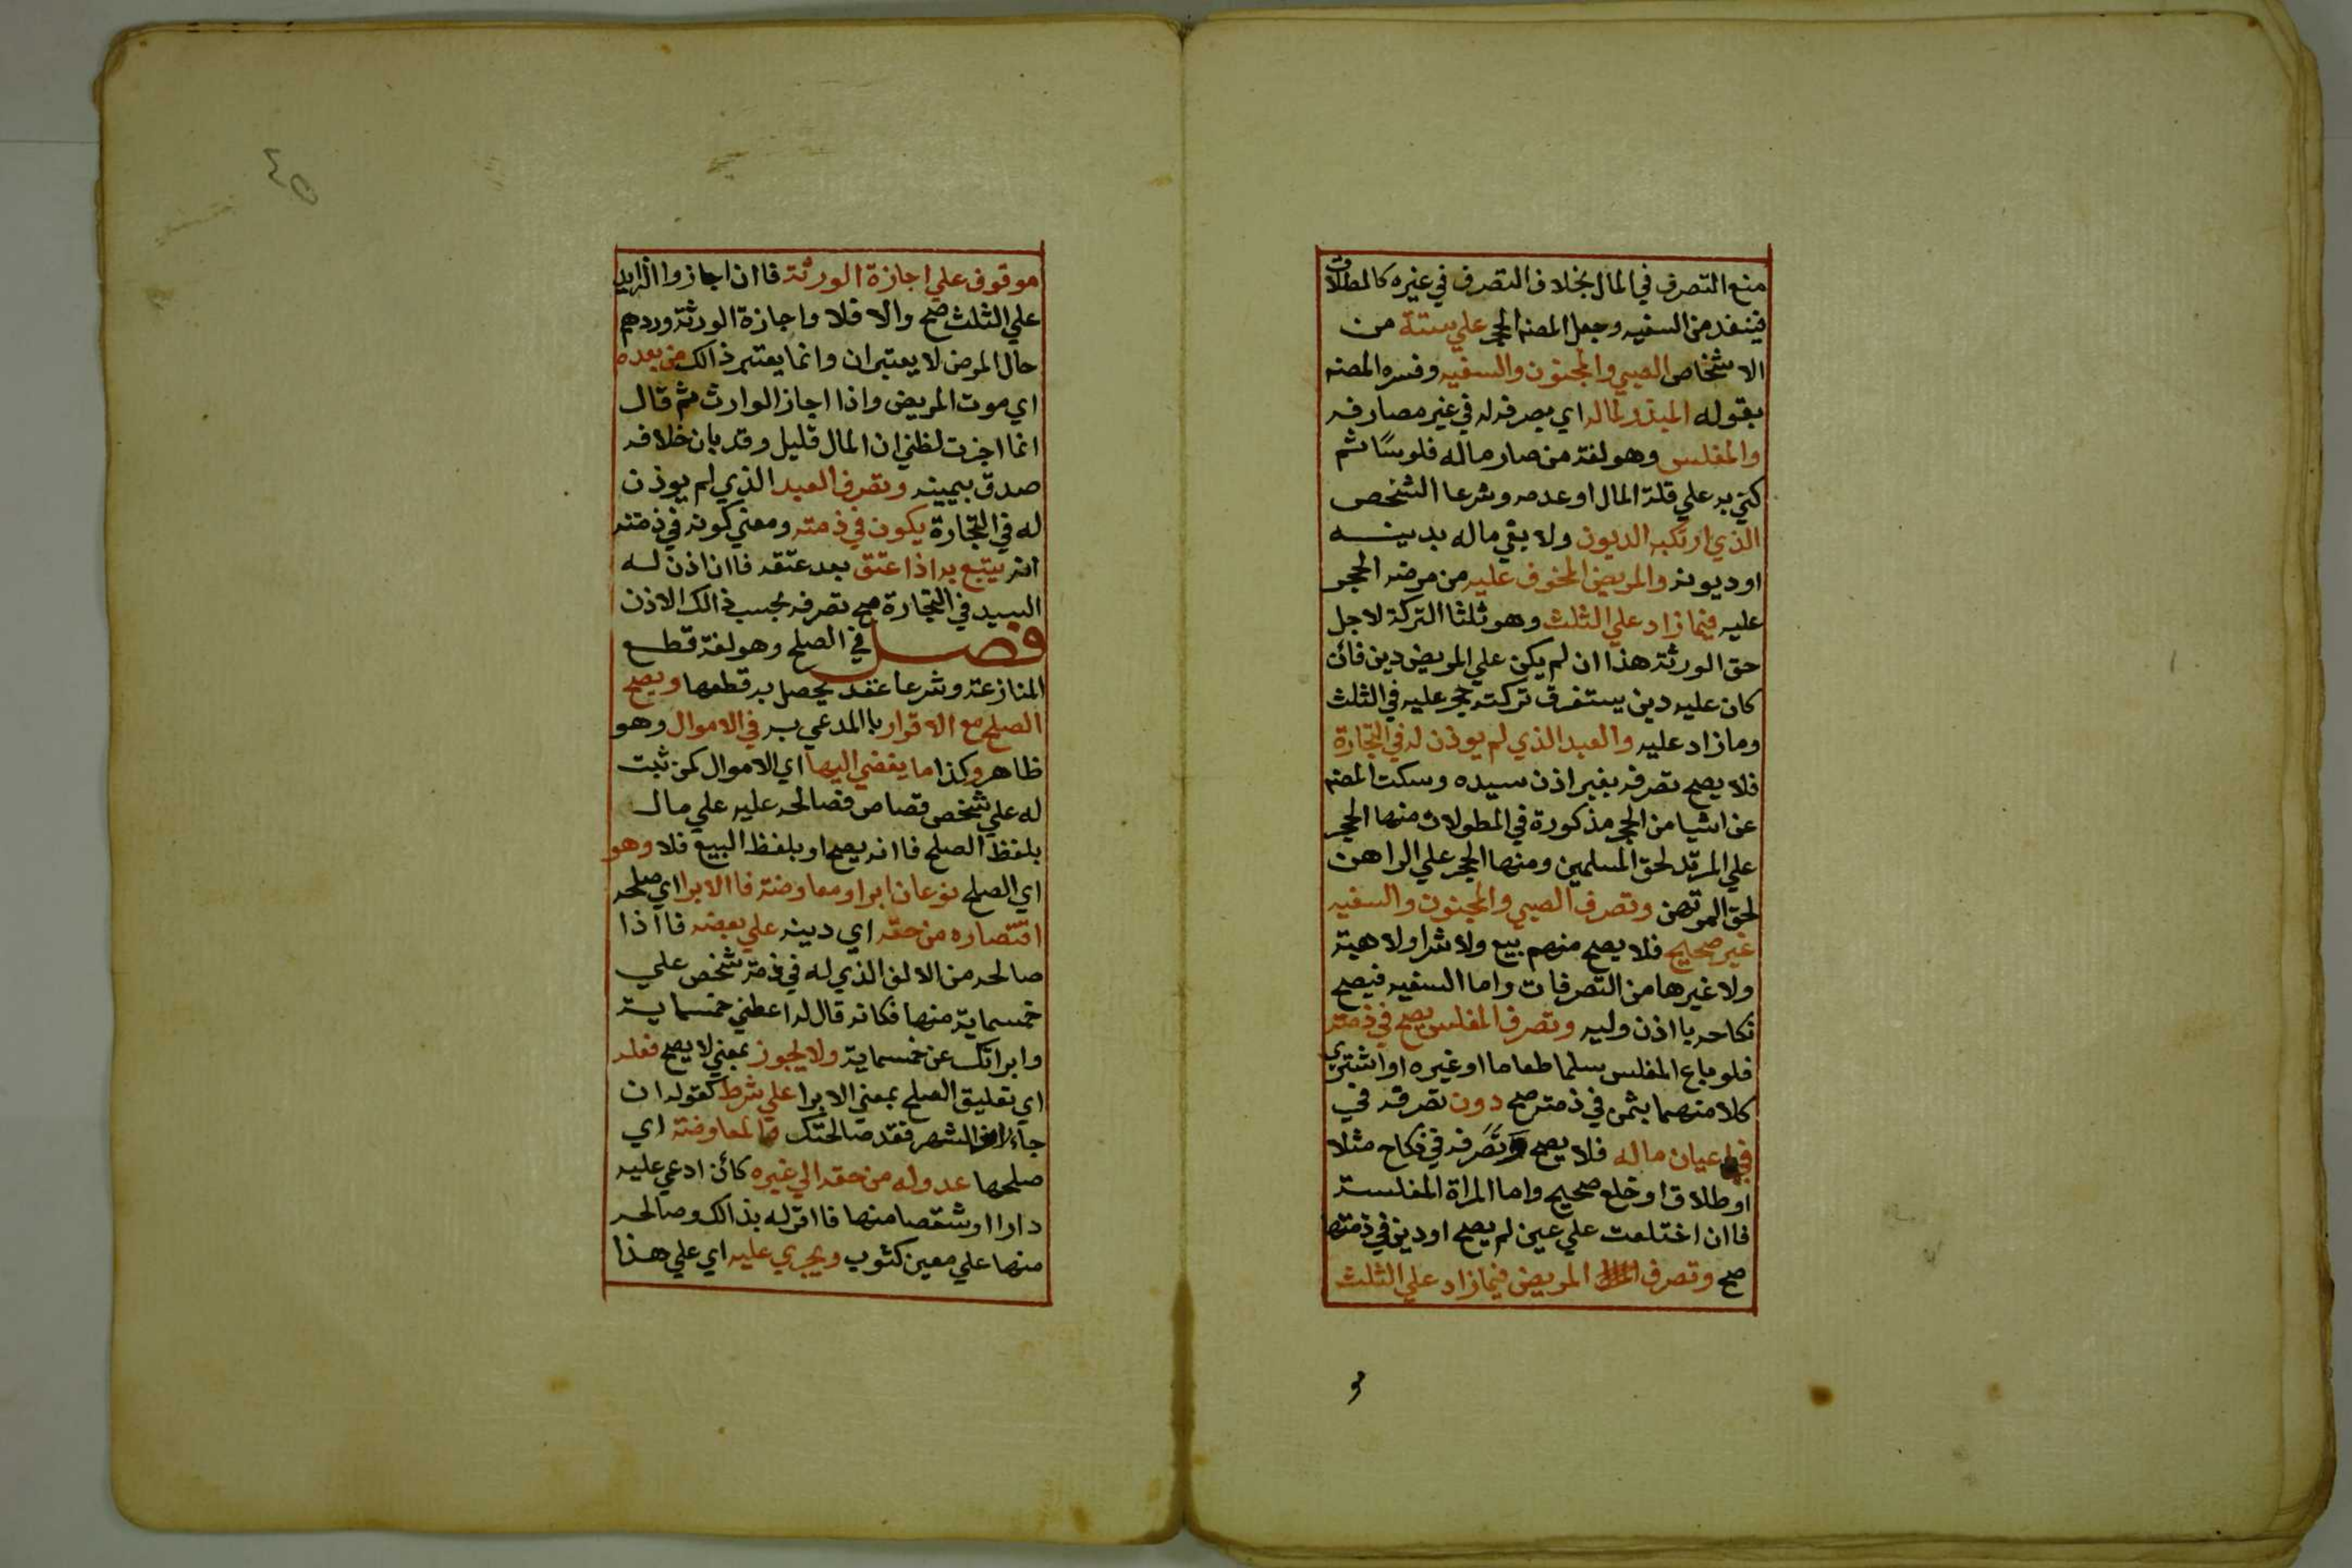 منع التصرف في المال بخلاف التصرف في غيره كالطلاق
فينفد من السفيه وجعل المصنه الحجر علي ستة من
الاشخاص الصبي والمجنون والسفيه وفسره المصنه
بقوله المبذر لماله اي يصرفه له في غير مصارفه
والمفلس وهو لغة من صار ماله فلوسًا ثم
كني به علي قلة المال او عدمه وشرعا الشخص
الذي ارتكبه الديون ولا يفي ماله بدينه
او ديونه والمريض المخوف عليه من مرضه الحجر
عليه فيما زاد علي الثلث وهو ثلثا التركة لاجل
حق الورثة هذا ان لم يكن علي المريض دين فائن
كان عليه دين يستغرق تركته حجر عليه في الثلث
وما زاد عليه والعبد الذي لم يوذن له في التجارة
فلا يصح تصرفه بغير اذن سيده وسكت المصنه
عن اشيا من الحجر مذكورة في المطولات منها الحجر
علي المرتد لحق المسلمين ومنها الحجر علي الراهن
لحق المرتهن وتصرف الصبي والمجنون والسفيه
غير صحيح فلا يصح منهم بيع ولا شرا ولا هبة
ولا غيرها من التصرفات واما السفيه فيصح
نكاحه با اذن وليه وتصرف المفلس يصح في ذمته
فلو باع المفلس سلما طعاما او غيره او اشتري
كلا منهما بثمن في ذمته صح دون تصرفه في
في اعيان ماله فلا يصح وتصرفه في نكاح مثلا
او طلاق او خلع صحيح واما المراة المفلسة
فاان اختلعت علي عين لم يصح او دين في ذمتها
صح وتصرف المريض فيما زاد علي الثلث
و
٤٥
موقوف علي اجازة الورثة فاان اجازوا الزايد
علي الثلث صح والا فلا واجازة الورثة وردهم
حال المرض لا يعتبران وانما يعتبر ذالك من بعده
اي موت المريض واذا اجاز الوارث ثم قال
انما اجزت لظني ان المال قليل وقد بان خلافه
صدق بيمينه وتصرف العبد الذي لم يوذن
له في التجارة يكون في ذمته ومعني كونه في ذمته
انه يتبع به اذا عتق بعد عتقه فاان اذن له
السيد في التجارة صح تصرفه بحسب ذالك الاذن
فصل في الصلح وهو لغة قطع
المنازعة وشرعا عقد يحصل به قطعها ويصح
الصلح مع الاقرار باالمدعي به في الاموال وهو
ظاهر وكذا ما يفضي اليها اي الاموال كمن ثبت
له علي شخص قصاص فصالحه عليه علي مال
بلفظ الصلح فاانه يصح او بلفظ البيع فلا وهو
اي الصلح نوعان ابرا ومعاوضة فاالابرا اي صلحه
اقتصاره من حقه اي دينه علي بعضه فااذا
صالحه من الالف الذي له في ذمة شخص علي
خمسماية منها فكانه قال له اعطني خمسماية
وابراتك عن خمسماية ولا يجوز بمعني لا يصح فعله
اي تعليق الصلح بمعني الابرا علي شرط كقوله ان
جاء راس الشهر فقد صالحتك والمعاوضة اي
صلحها عدوله من حقه الي غيره كائن ادعي عليه
دارا او شقصا منها فااقر له بذالك وصالحه
منها علي معين كثوب ويجري عليه اي علي هذا